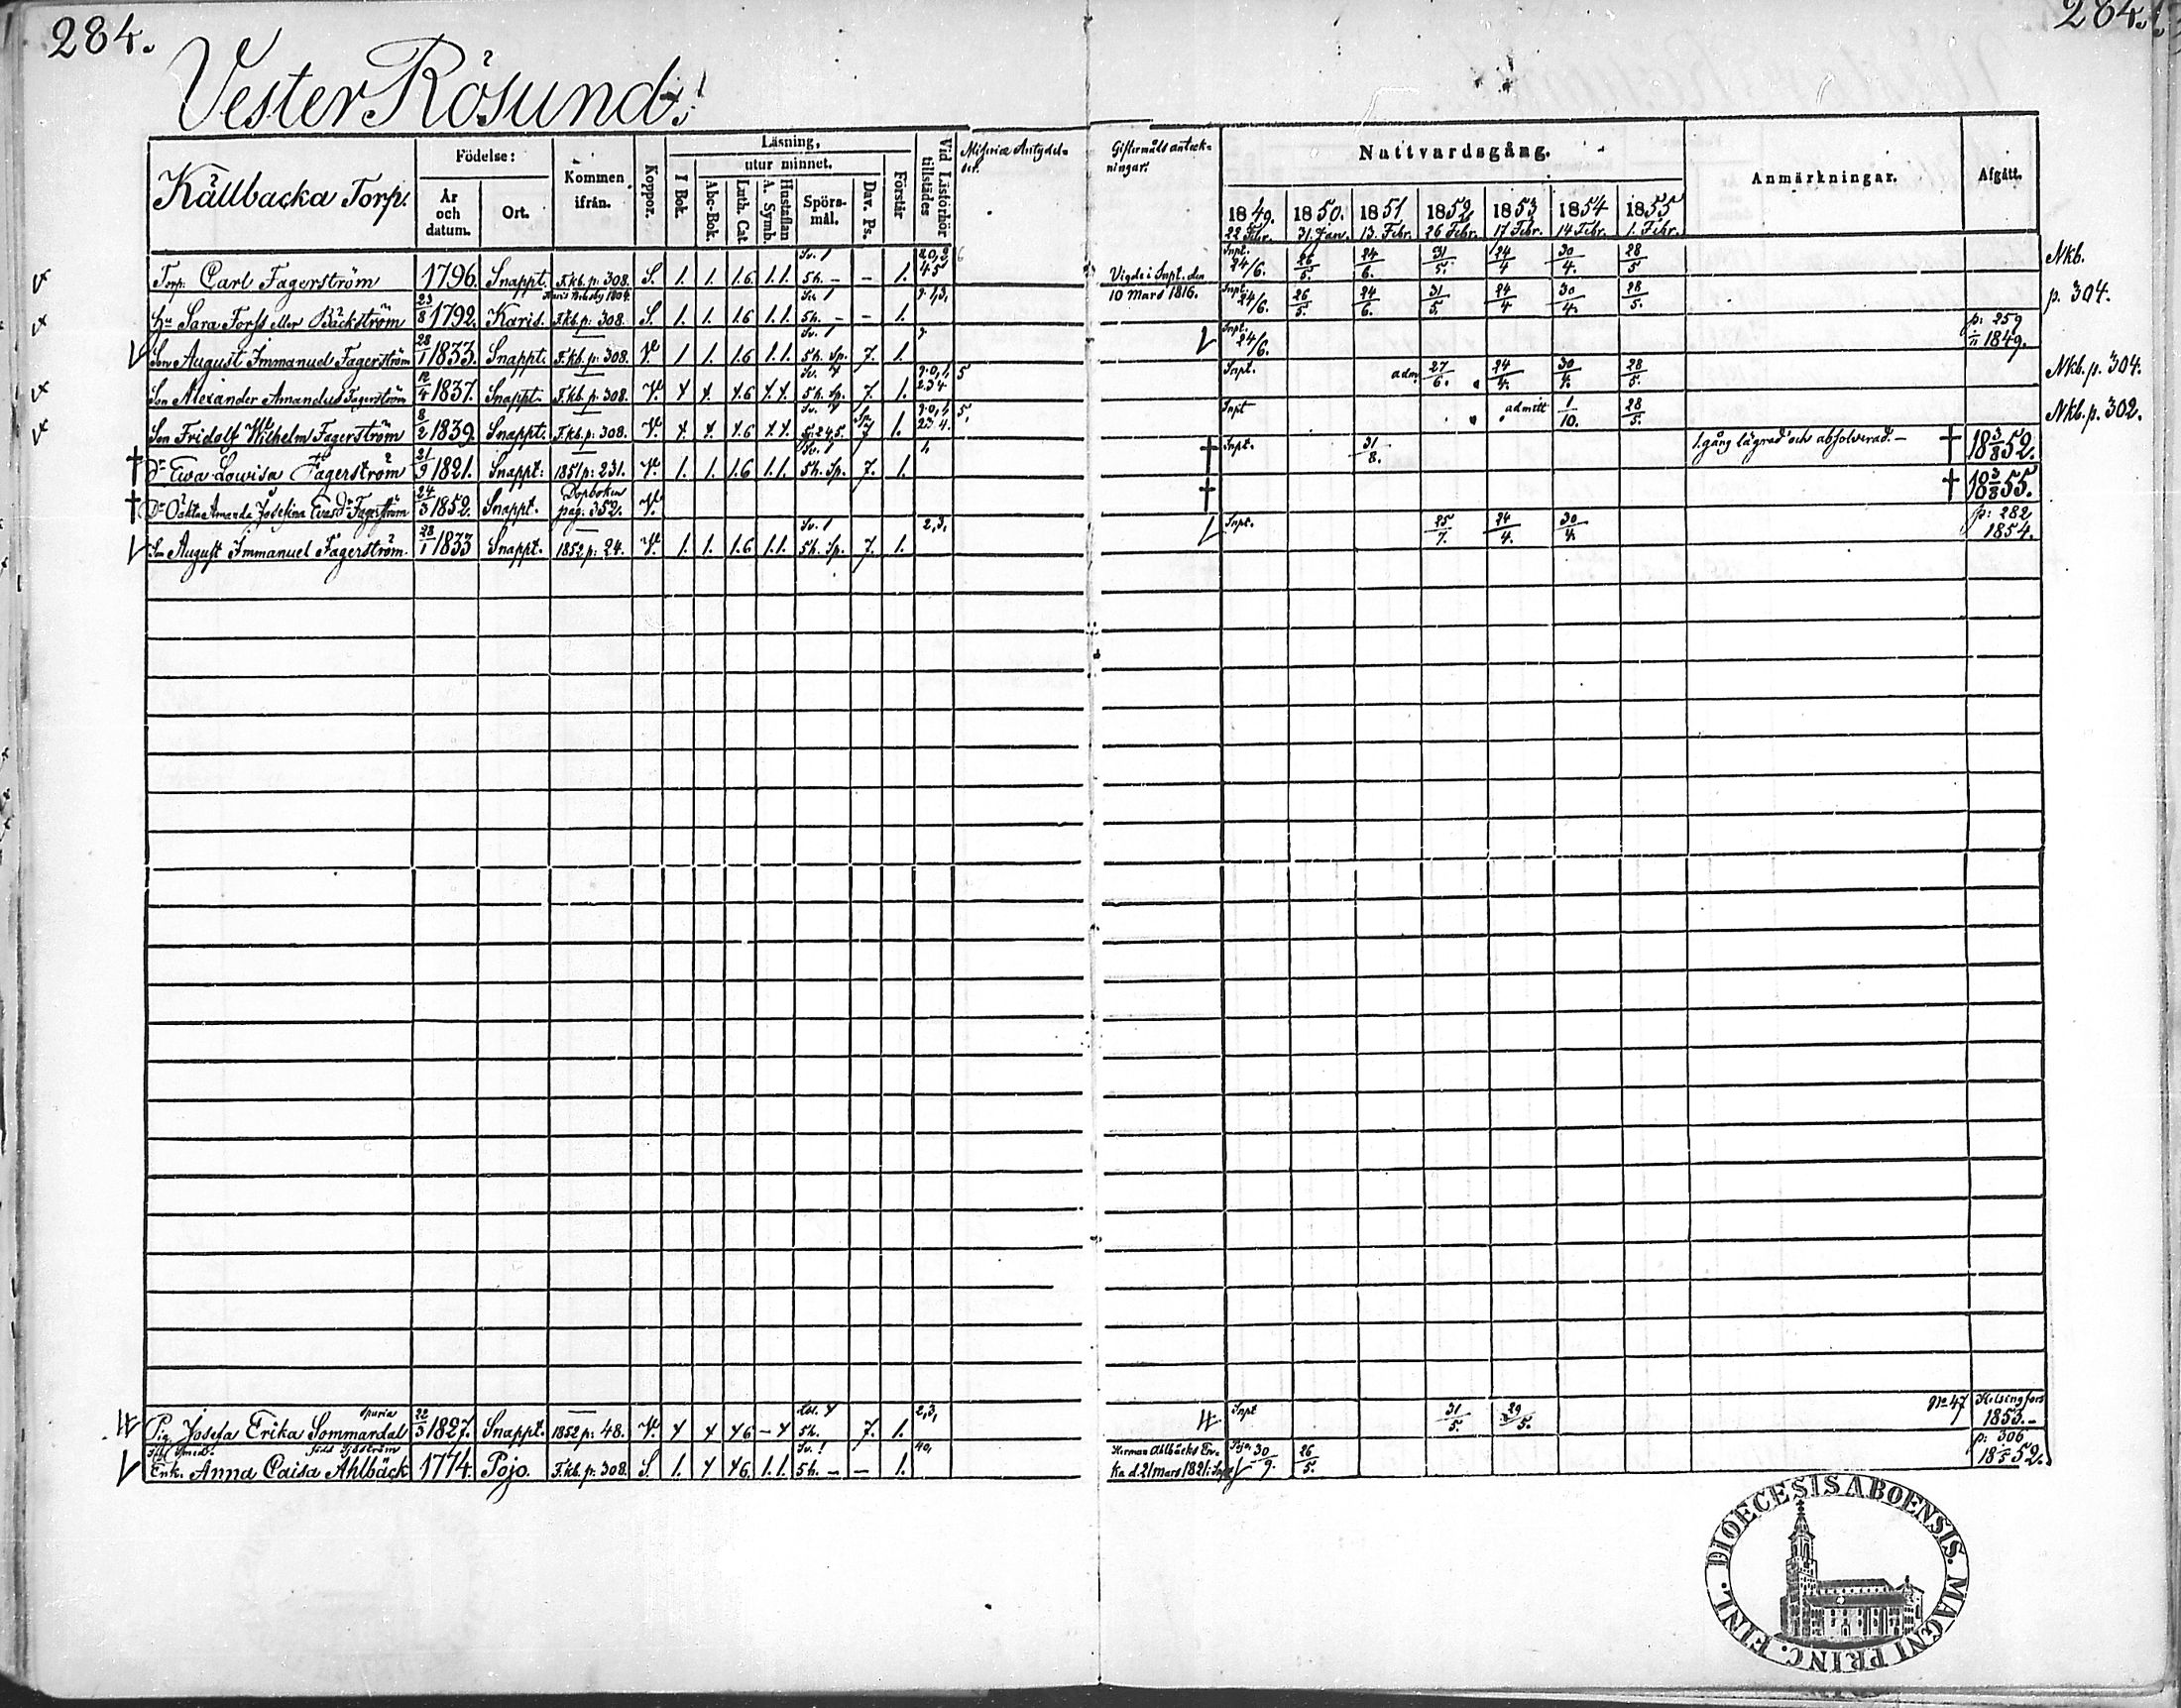 284.
284.
Vester Rösund.
Källbacka Torp.
Födelse:
År och datum.
Ort.
Kommen ifrån.
Koppor.
Läsning,
I Bok.
utur minnet.
Abc-Bok.
Luth. Cat.
A. Symb. Hustaflan
Spörs-mål.
Dav. Ps.
Förstår
Vid Läsförhör tillstädes
Giftermåls anteck-ningar.
Nattvardsgång.
1849. 22 Febr.
1850. 31. Jan.
1851 13. Febr.
1852 26 Febr.
1853 17 Febr.
1854 14 Febr.
1855 1. Febr.
Anmärkningar.
Afgått.
Torp. Carl Fagerström 1796. Snappt. F.kb. p. 308. S. 1. 1. 1.6 1.1. Sv. 1 5h. – – 1. Vigde i Snpt. den Snpt. 24/6. 26/5. 24/6. 31/5. 24/4 30/4. 28/5 Nkb.
Hu Sara Forss eller Bäckström 23/8 1792. Karis. F.kb. p: 308. S. 1. 1. 1.6 1.1. 5h. – – 1. 10 Mars 1816. Snpt. 24/6. 26/5. 24/6. 31/5. 24/4 30/4. 28/5. p. 304.
Son August Immanuel Fagerström 28/1 1833. Snappt. F.kb. p: 308. V. 1 1. 1.6 1.1. Sv. 1 5h. Sp. 7. 1. Snpt. 24/6. p: 259 1849.
Son Alexander Amandus Fagerström 12/4 1837. Snappt. F.kb. p. 308. V. 5h. Sp. 7. 1. 5 Snpt. adm. 27/6. 24/4. 30/4. 28/5. Nkb. p. 304.
Son Fridolf Wilhelm Fagerström 8/2 1839. Snappt. F.kb. p: 308. V. 7 1. 5. Snpt admitt 1/10. 28/5. Nkb. p. 302.
Dr Ewa Lowisa Fagerström 21/9 1821. Snappt: 1851 p: 231. V. 1. 1. 1.6 1.1. Sv. 1 5h. Sp. 7. 1. Snpt. 31/8. 1. gång lägrad och absolverad. – 18 3/8 52.
Dr Oäkta Amanda Josefina Evasdr Fagerström 24/3 1852. Snappt. Dopboken pag. 352. V. 18 3/8 55.
Son August Immanuel Fagerström. 28/1 1833 Snappt. 1852 p: 24. V. 1. 1. 1.6 1.1. Sv. 1 5h. Sp. 7. 1. 2,3, Snpt. 25/7. 24/4. 30/4. p: 282 1854.
Pig. Josefa Erika Sommardal spuria 22/3 1827. Snappt. 1852 p: 48. V. 5h. 7. 1. 2,3, Snpt 31/5. 29/5. No 47 Helsingfors 1853. –
Enk. Anna Caisa Ahlbäck 1774. Pojo. F.kb. p: 308. S. 1. 1.1. Sv. 1 5h. – – 1. Herman Ahlbäcks En-ka d. 21 mars 1821. Pojo 30/9. 26/5. p: 306 1852.
DIOECESIS ABOENSIS. MAGNI PRINC. FINL.